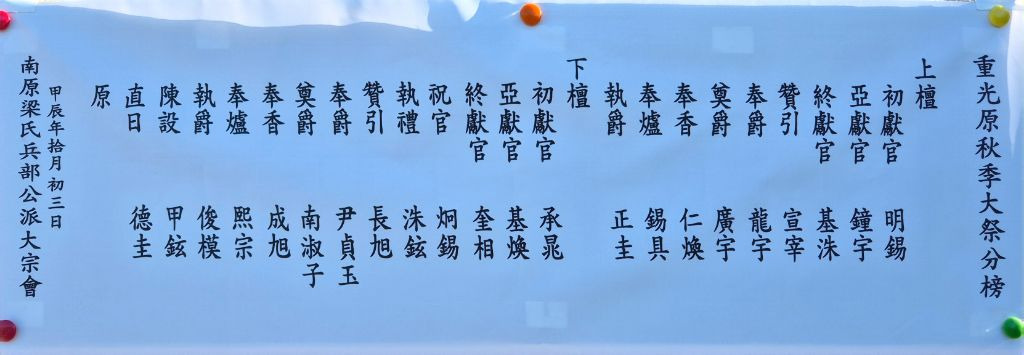 重光原秋季大祭分榜
上壇
初獻官 明錫
亞獻官 鐘宇
終獻官 基洙
贊引 宣宰
奉爵 龍宇
奠爵 廣宇
奉香 仁煥
奉爐 錫具
執爵 正圭
下壇
初獻官 承晁
亞獻官 基煥
終獻官 奎相
祝官 炯錫
執禮 洙鉉
贊引 長旭
奉爵 尹貞玉
奠爵 南淑子
奉香 成旭
奉爐 熙宗
執爵 俊模
陳設 甲鉉
直日 德圭
原
甲辰年拾月初三日
南原梁氏兵部公派大宗會